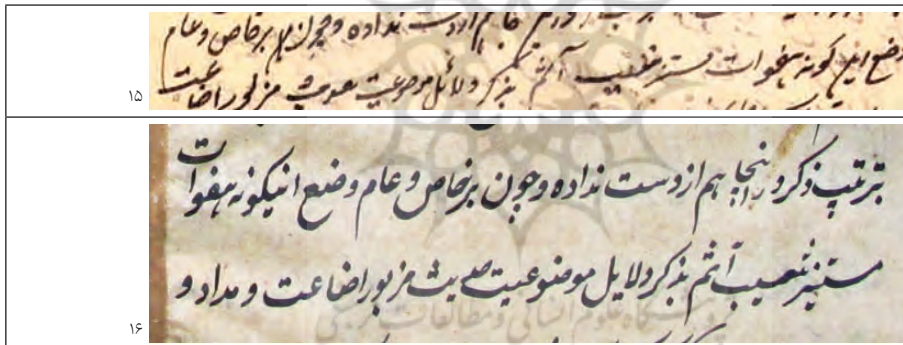 نداده و چون بر خاص و عام
وضع این گونه هفوات مستنیر آثم بذکر دلائل موضوعیت حدیث مزبور اضاعت
۱۵
بترتیب ذکر هم از دست نداده و چون بر خاص و عام وضع اینگونه هفوات
مستنیر آثم بذکر دلایل موضوعیت حدیث مزبور اضاعت و مداد و
علوم انسانی و مطالعات فرهنگی
۱۶